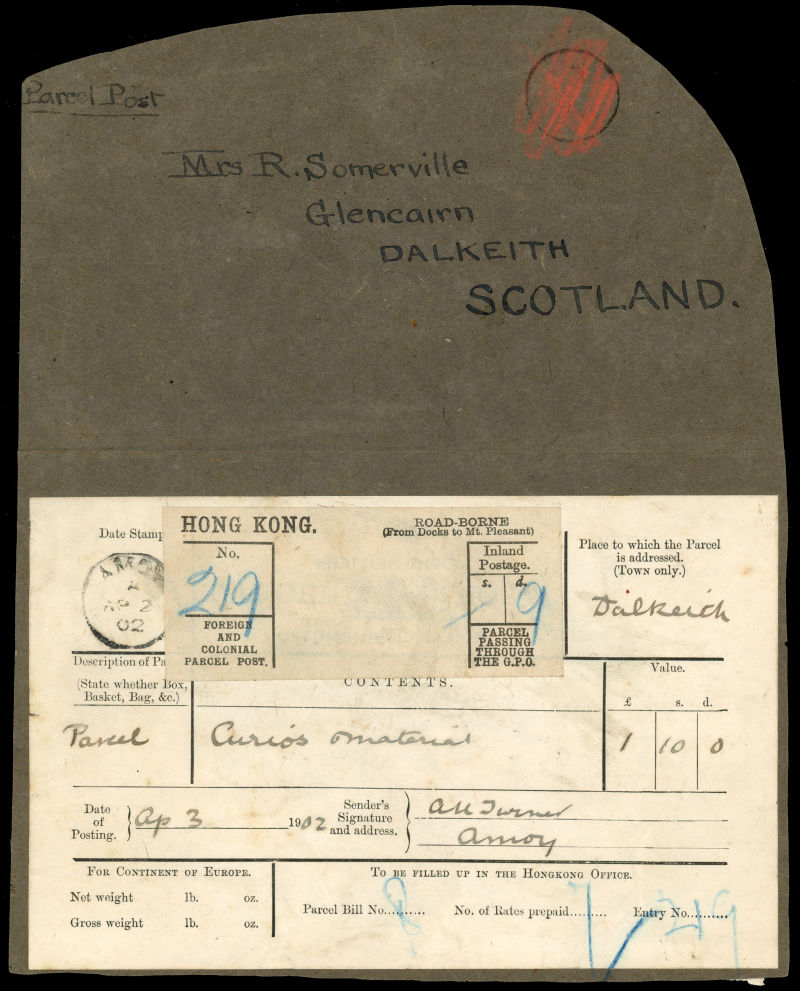 Parcel Post
Mrs R. Somerville
Glencairn
DALKEITH
SCOTLAND.
Date Stamp
AMOY
A
AP 2
02
HONG KONG.
No.
219
FOREIGN
AND
COLONIAL
PARCEL POST.
ROAD-BORNE
(From Docks to Mt. Pleasant)
Inland
Postage.
s. d.
— 9
PARCEL
PASSING
THROUGH
THE G.P.O.
Place to which the Parcel
is addressed.
(TOWN only.)
Dalkeith
Description of Pa
(State whether Box,
Basket, Bag, &c.)
Parcel
CONTENTS.
Curios material
Value.
£ s. d.
1 10 0
Date
of
Posting.
Ap 3 1902
Sender's
Signature
and address.
Turner
Amoy
FOR CONTINENT OF EUROPE.
Net weight lb. oz.
Gross weight lb. oz.
TO BE FILLED UP IN THE HONGKONG OFFICE.
Parcel Bill No.......... 8 No. of Rates prepaid......... Entry No.......... 219